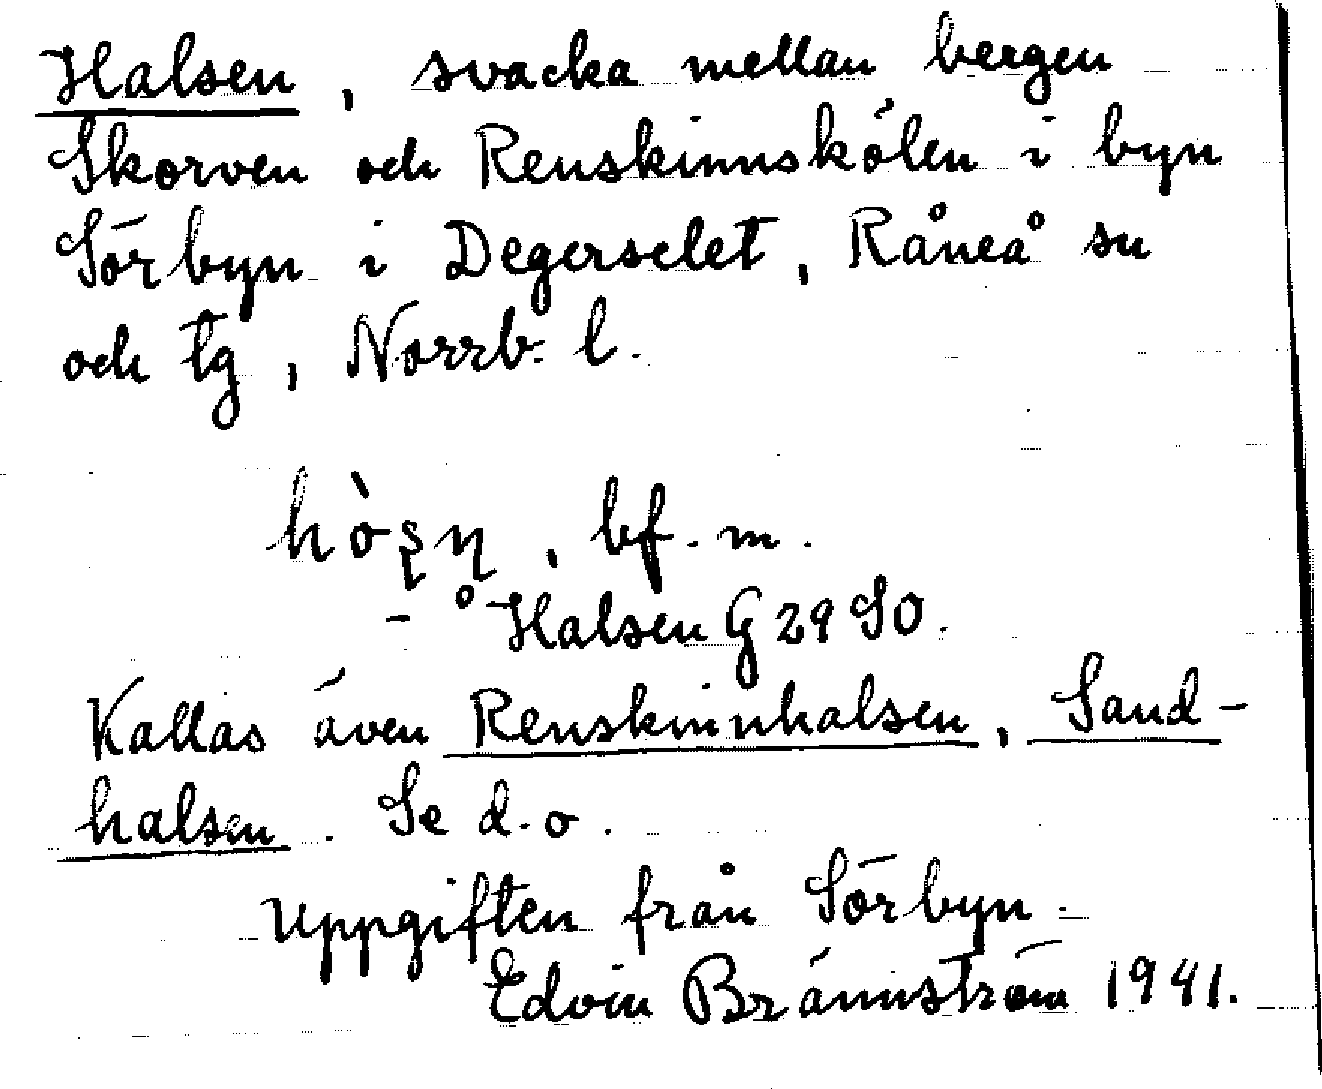 Halsen, svacka mellan bergen
Skorven och Renskinnskölen i byn
Sörbyn i Degerselet, Råneå sn
och tg, Norrb. l.
hò̀ʂn̥, bf. m.
- ° Halsen G 29 SO.
Kallas även Renskinnhalsen, Sand-
halsen. Se d. o.
Uppgiften från Sörbyn.
Edvin Brännström 1941.